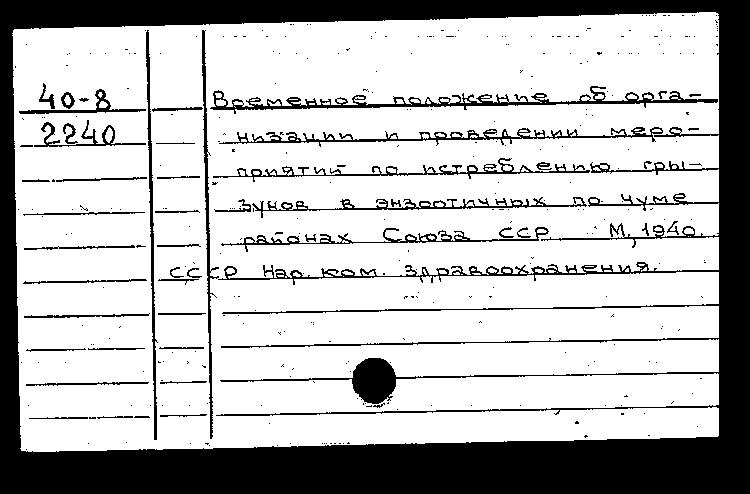 40-8
2240
Временное положение об орга-
низации и проведении меро-
приятий по истреблению гры-
зунов в энзоотичных по чуме
районах Союза ССР М, 1940.
СССР Нар. ком. здравоохранения.